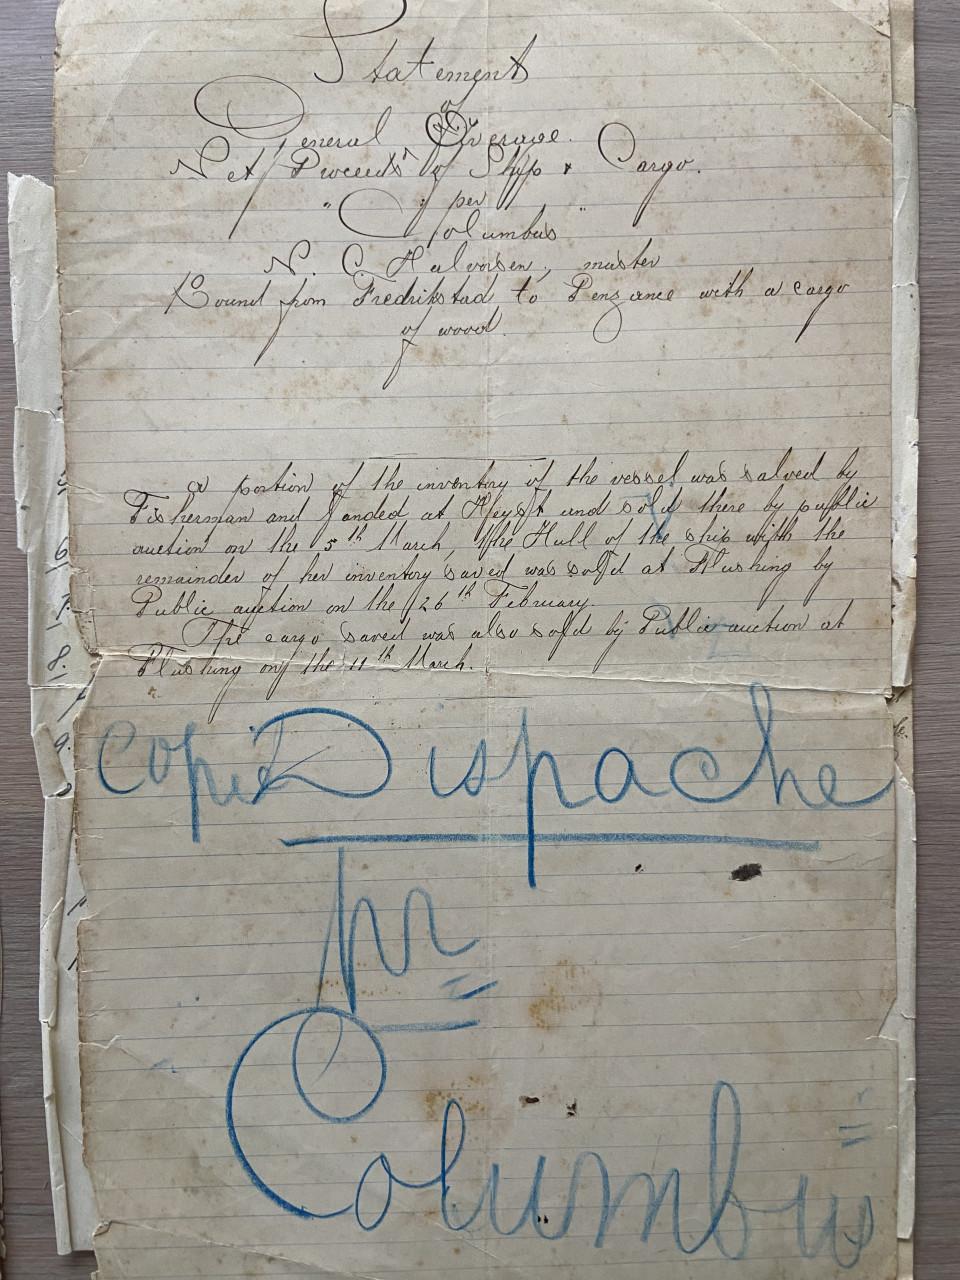 Statement
of
General Average.
Net Proceeds of Ship & Cargo.
" per
Columbus "
N. C. Halvorsen, master
Bound from Fredrikstad to Penzance with a cargo
of wood.
A portion of the inventory of the vessel was salved by
Fisherman and landed at Heyst and sold there by public
auction on the 5th March, the Hull of the ship with the
remainder of her inventory saved was sold at Flushing by
Public auction on the 26th February.
The cargo saved was also sold by Public auction at
Flushing on the 11th March.
Copie Dispache
pr
Columbus